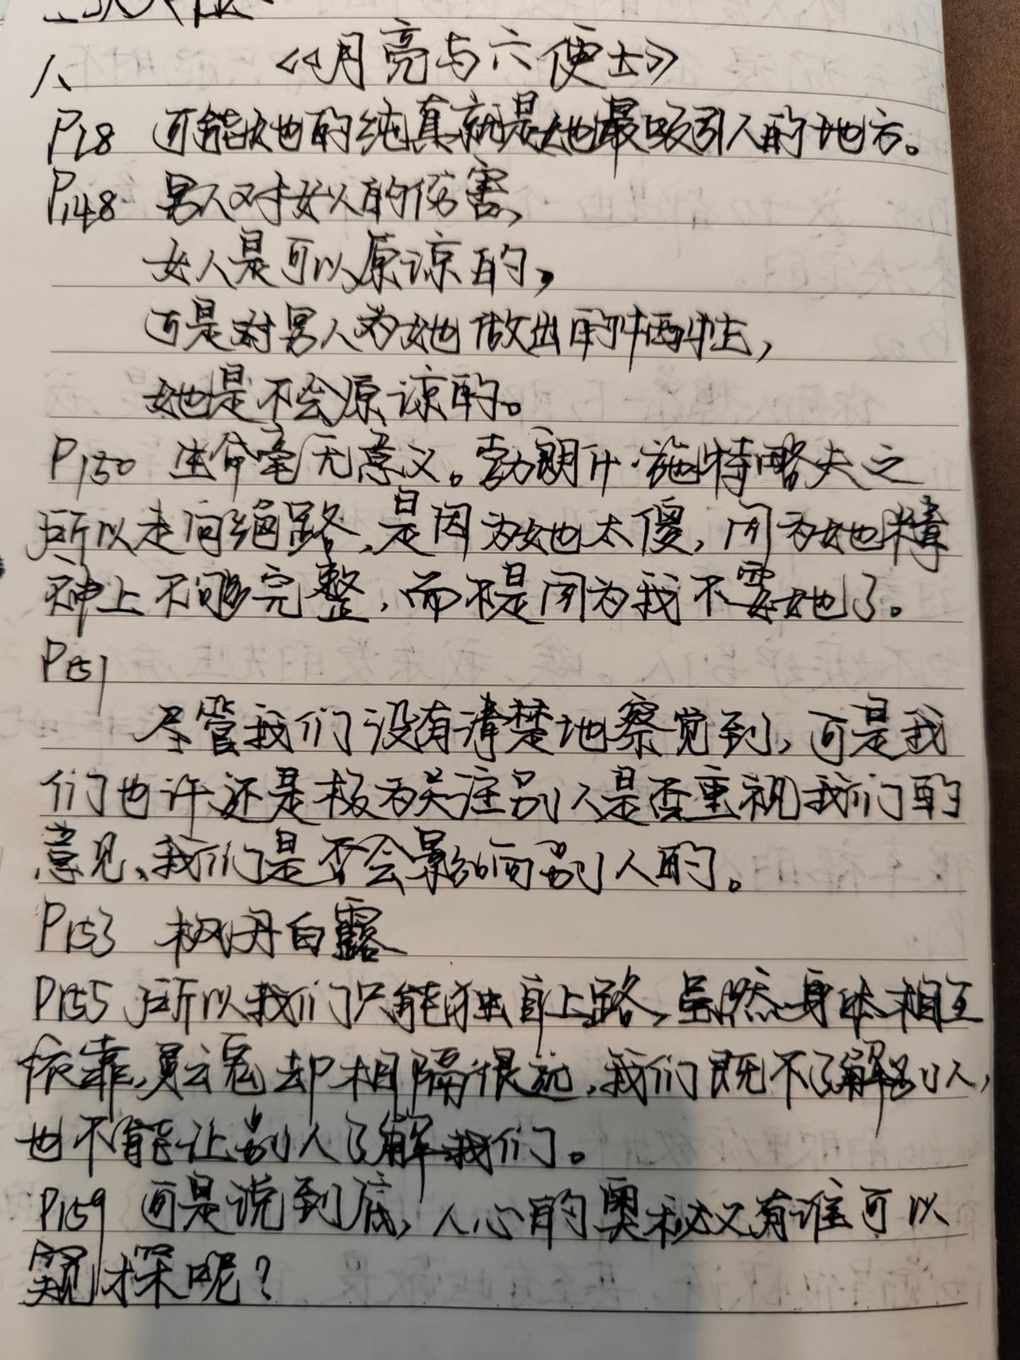 八、 《月亮与六便士》
P18 可能她的纯真就是她最吸引人的地方。
P148 男人对女人的伤害,
女人是可以原谅的,
可是对男人为她做出的牺牲,
她是不会原谅的。
P150 生命毫无意义。勃朗什·施特略夫之
所以走向绝路,是因为她太傻,因为她精
神上不够完整,而不是因为我不要她了。
P151
尽管我们没有清楚地察觉到,可是我
们也许还是极为关注别人是否重视我们的
意见、我们是否会影响别人的。
P153 枫丹白露
P155 所以我们只能独自上路,虽然身体相互
依靠,灵魂却相隔很远,我们既不了解别人,
也不能让别人了解我们。
P159 可是说到底,人心的奥秘又有谁可以
窥探呢?